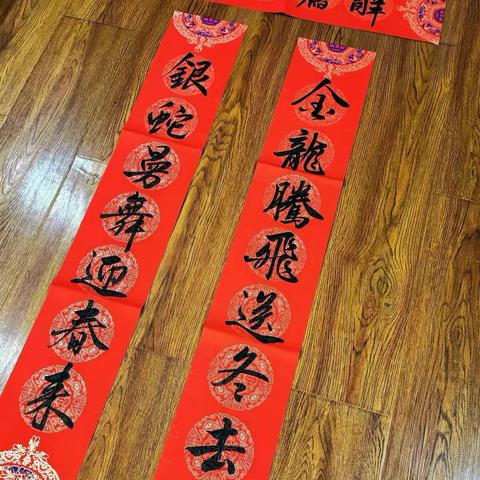 金龍騰飛送冬去
銀蛇曼舞迎春来